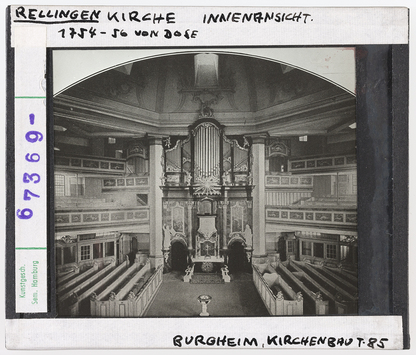 RELLINGEN KIRCHE INNENANSICHT.
1754-56 VON DOSE
67369-
Kunstgesch.
Sem. Hamburg
BURGHEIM, KIRCHENBAU T. 85